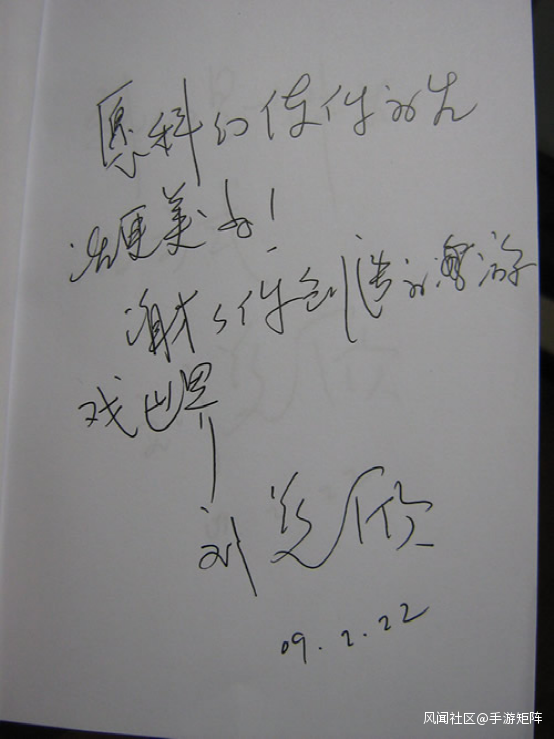 愿科幻使你的生
活更美好！
谢谢你创造的
戏世界
刘慈欣
09.2.22
风闻社区@手游矩阵